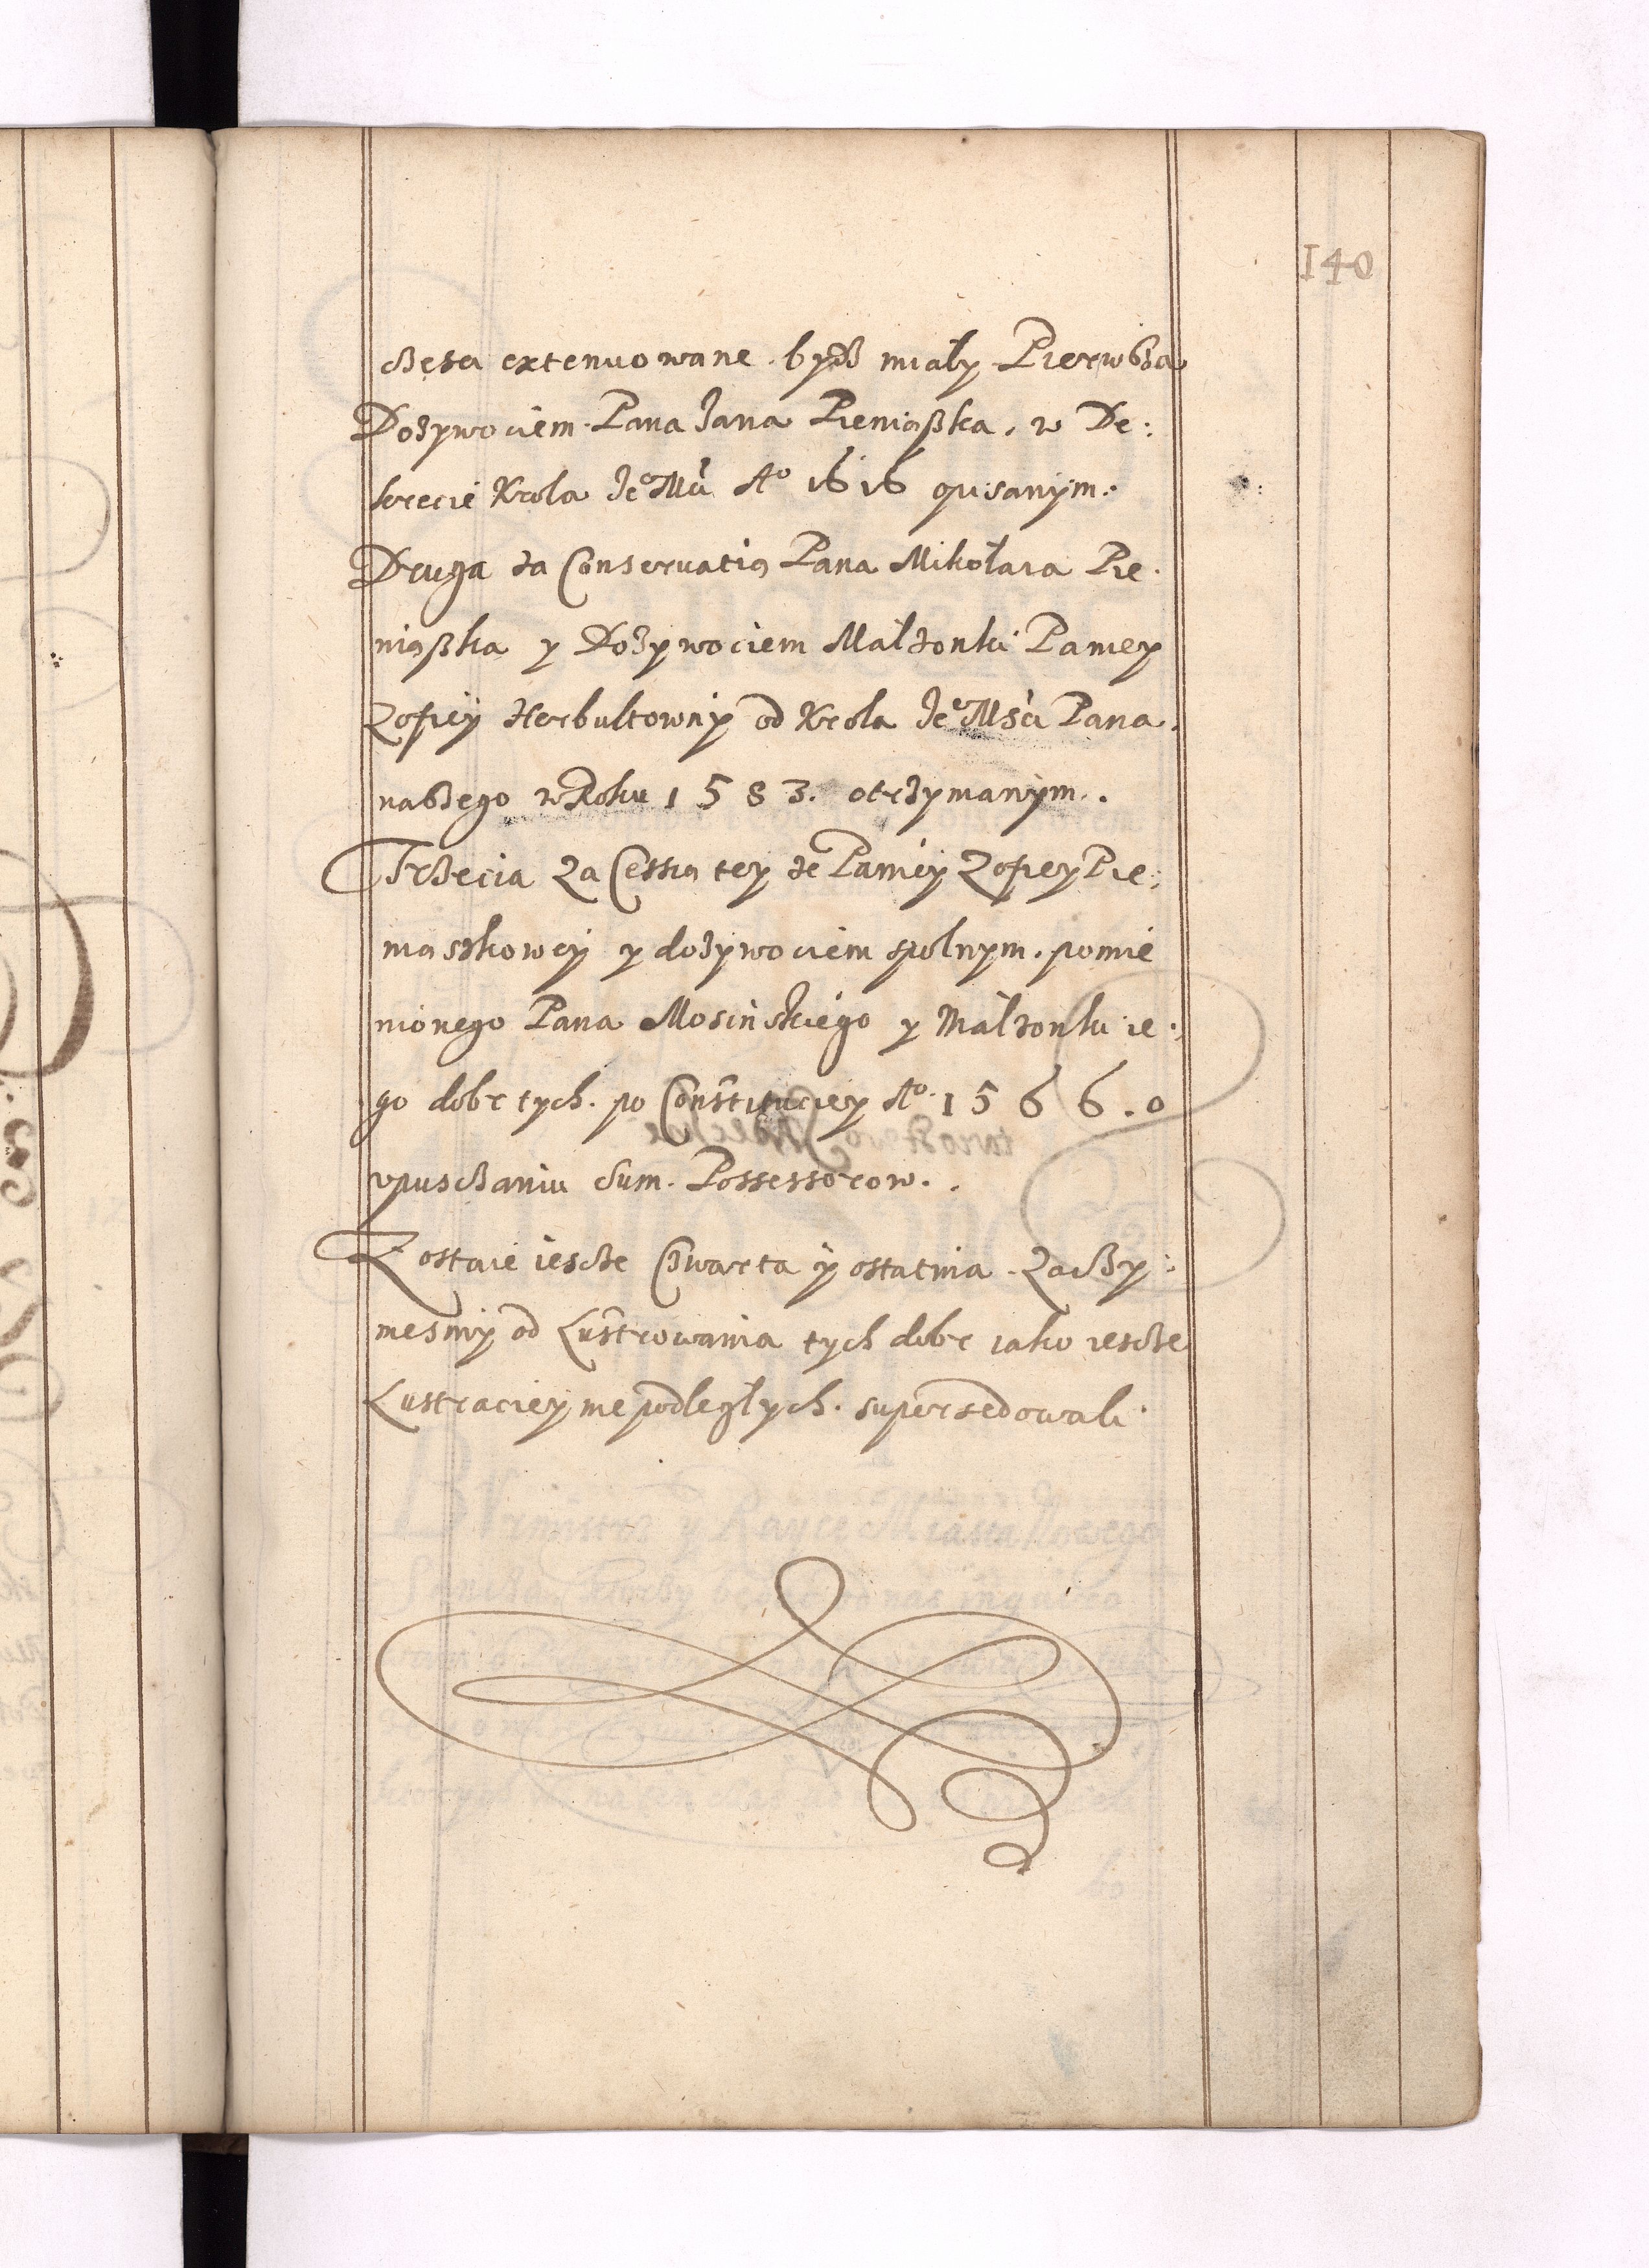 140
częsci extenuowane. bydź miały Pierwsza
Dozywociem. Pana Jana Pieniąszka. w De:
krecie Krola JeoMći Ao 1616 opisanym.
Druga za Conseruatią Pana Mikołaia Pie.
niąszka y Dozywociem Małzonki Paniey
Zofiey Herbultowny od Krola JeoMsći Pana.
naszego w Roku 1583. otrzymanym..
Trzecia Za Cessią tey ze Paniey Zofiey Pie:
niąszkowey y dozywociem spolnym. pomie
nionego Pana Mosinskiego y Małzonki ie:
go dobr tych. po Constituciey Ao. 1566. o
vpusczaniu Sum. Possessorow..
Zostaie iescze Czwarta y ostatnia. Zaczy:
mesmy od Lustrowania tych dobr iako iescze
Lustraciey nie podległych. supersedowali.